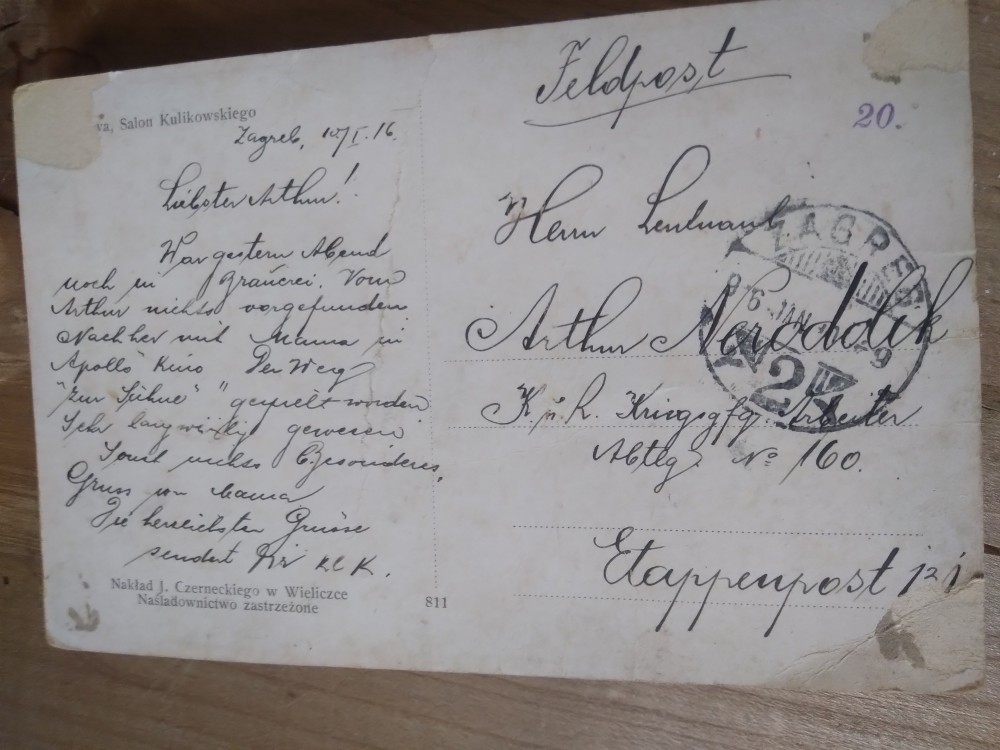 va, Salon Kulikowskiego
Zagreb, 10/I. 16.
Liebster Arthur!
War gestern Abend
noch in Brauerei. Vom
Arthur nichts vorgefunden
Nachher mit Mama in
Apollo Kino Der Weg
"zur Sühne" gespielt worden
Sehr langweilig gewesen
Sonst nichts Besonderes,
Gruss von Mama
Die herzlichsten Grüsse
sendet Dir
Nakład J. Czerneckiego w Wieliczce
Naśladownictwo zastrzeżone
811
Feldpost
20.
Herrn Leutnant
Arthur Noroddik
K. u. k. Kriegsgfgr. Arbeiter
Abtlg. No 160.
Etappenpost
ZAGREB
916 JAN
9
2